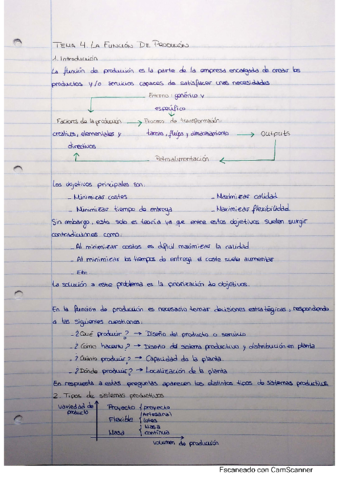 TEMA 4. LA FUNCIÓN DE PRODUCCIÓN
1. Introducción
La función de producción es la parte de la empresa encargada de crear los
productos y/o servicios capaces de satisfacer unas necesidades
Entorno genérico y
específico
Factores de la producción → Proceso de transformación:
creativos, elementales y tareas, flujos y almacenamiento → outputs
directivos
Retroalimentación
Los objetivos principales son:
- Minimizar costes - Maximizar calidad
- Minimizar tiempo de entrega - Maximizar flexibilidad
Sin embargo, esto solo es teoría ya que entre estos objetivos suelen surgir
contradicciones como:
- Al minimizar costes es difícil maximizar la calidad
- Al minimizar los tiempos de entrega el coste suele aumentar
- Etc.
La solución a este problema es la priorización de objetivos.
En la función de producción es necesario tomar decisiones estratégicas, respondiendo
a las siguientes cuestiones:
- ¿Qué producir? → Diseño del producto o servicio
- ¿Cómo hacerlo? → Diseño del sistema productivo y distribución en planta
- ¿Cuánto producir? → Capacidad de la planta
- ¿Dónde producir? → Localización de la planta
En respuesta a estas preguntas aparecen los distintos tipos de sistemas productivos
2. Tipos de sistemas productivos
variedad de producto
Proyecto { proyecto
Flexible { artesanal
lotes
Masa { masa
continua
volumen de producción
Escaneado con CamScanner